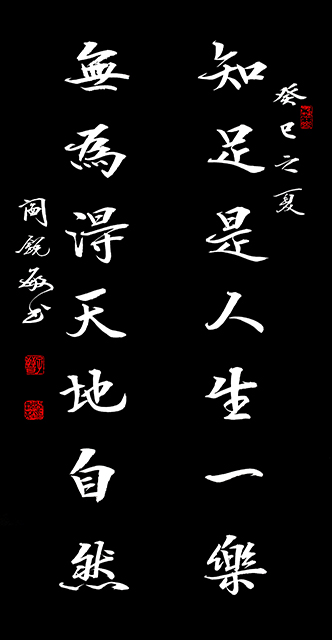 癸巳之夏
知足是人生一樂
無為得天地自然
閻銳敏书